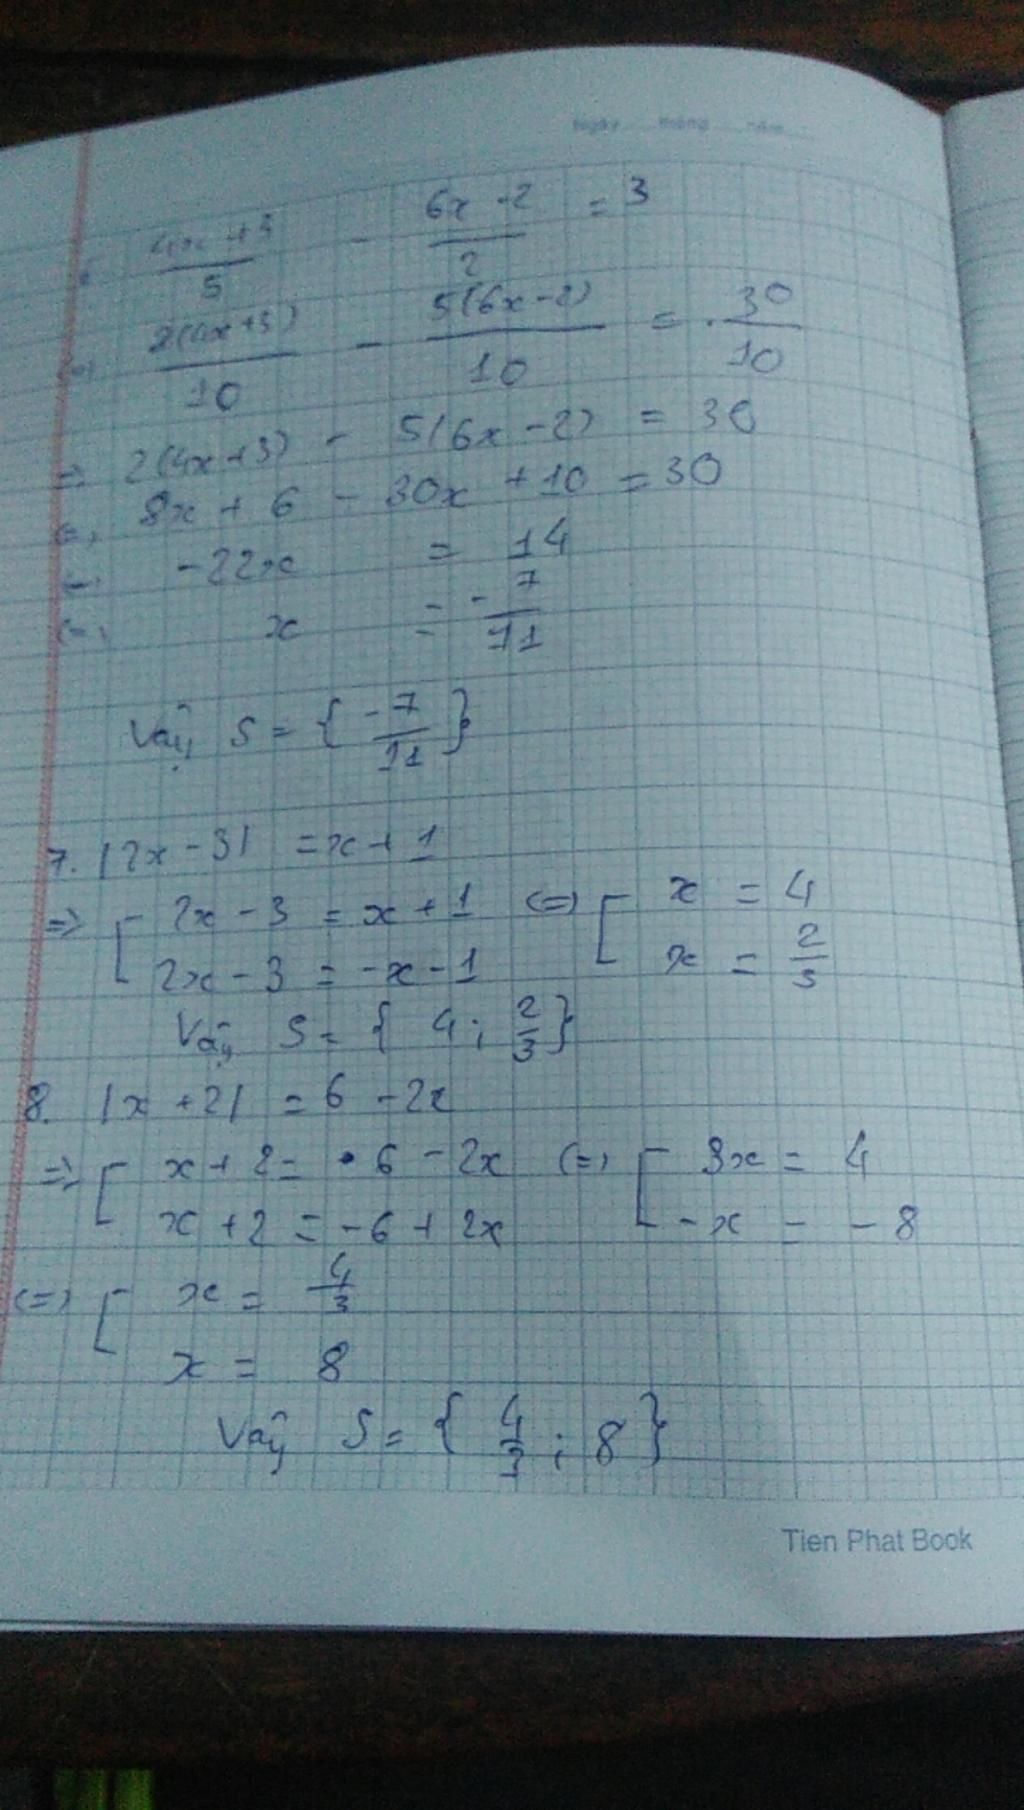 Ngày tháng năm
4x+3/5 - 6x-2/2 = 3
(=) 2(4x+3)/10 - 5(6x-2)/10 = 30/10
=> 2(4x+3) - 5(6x-2) = 30
(=) 8x + 6 - 30x + 10 = 30
(=) -22x = 14
(=) x = -7/11
Vậy S = { -7/11 }
7. |2x-3| = x+1
=> [ 2x-3 = x+1 (=) [ x = 4
2x-3 = -x-1 x = 2/3
Vậy S = { 4 ; 2/3 }
8. |x+2| = 6-2x
=> [ x+2 = 6-2x (=) [ 3x = 4
x+2 = -6+2x -x = -8
(=) [ x = 4/3
x = 8
Vậy S = { 4/3 ; 8 }
Tien Phat Book